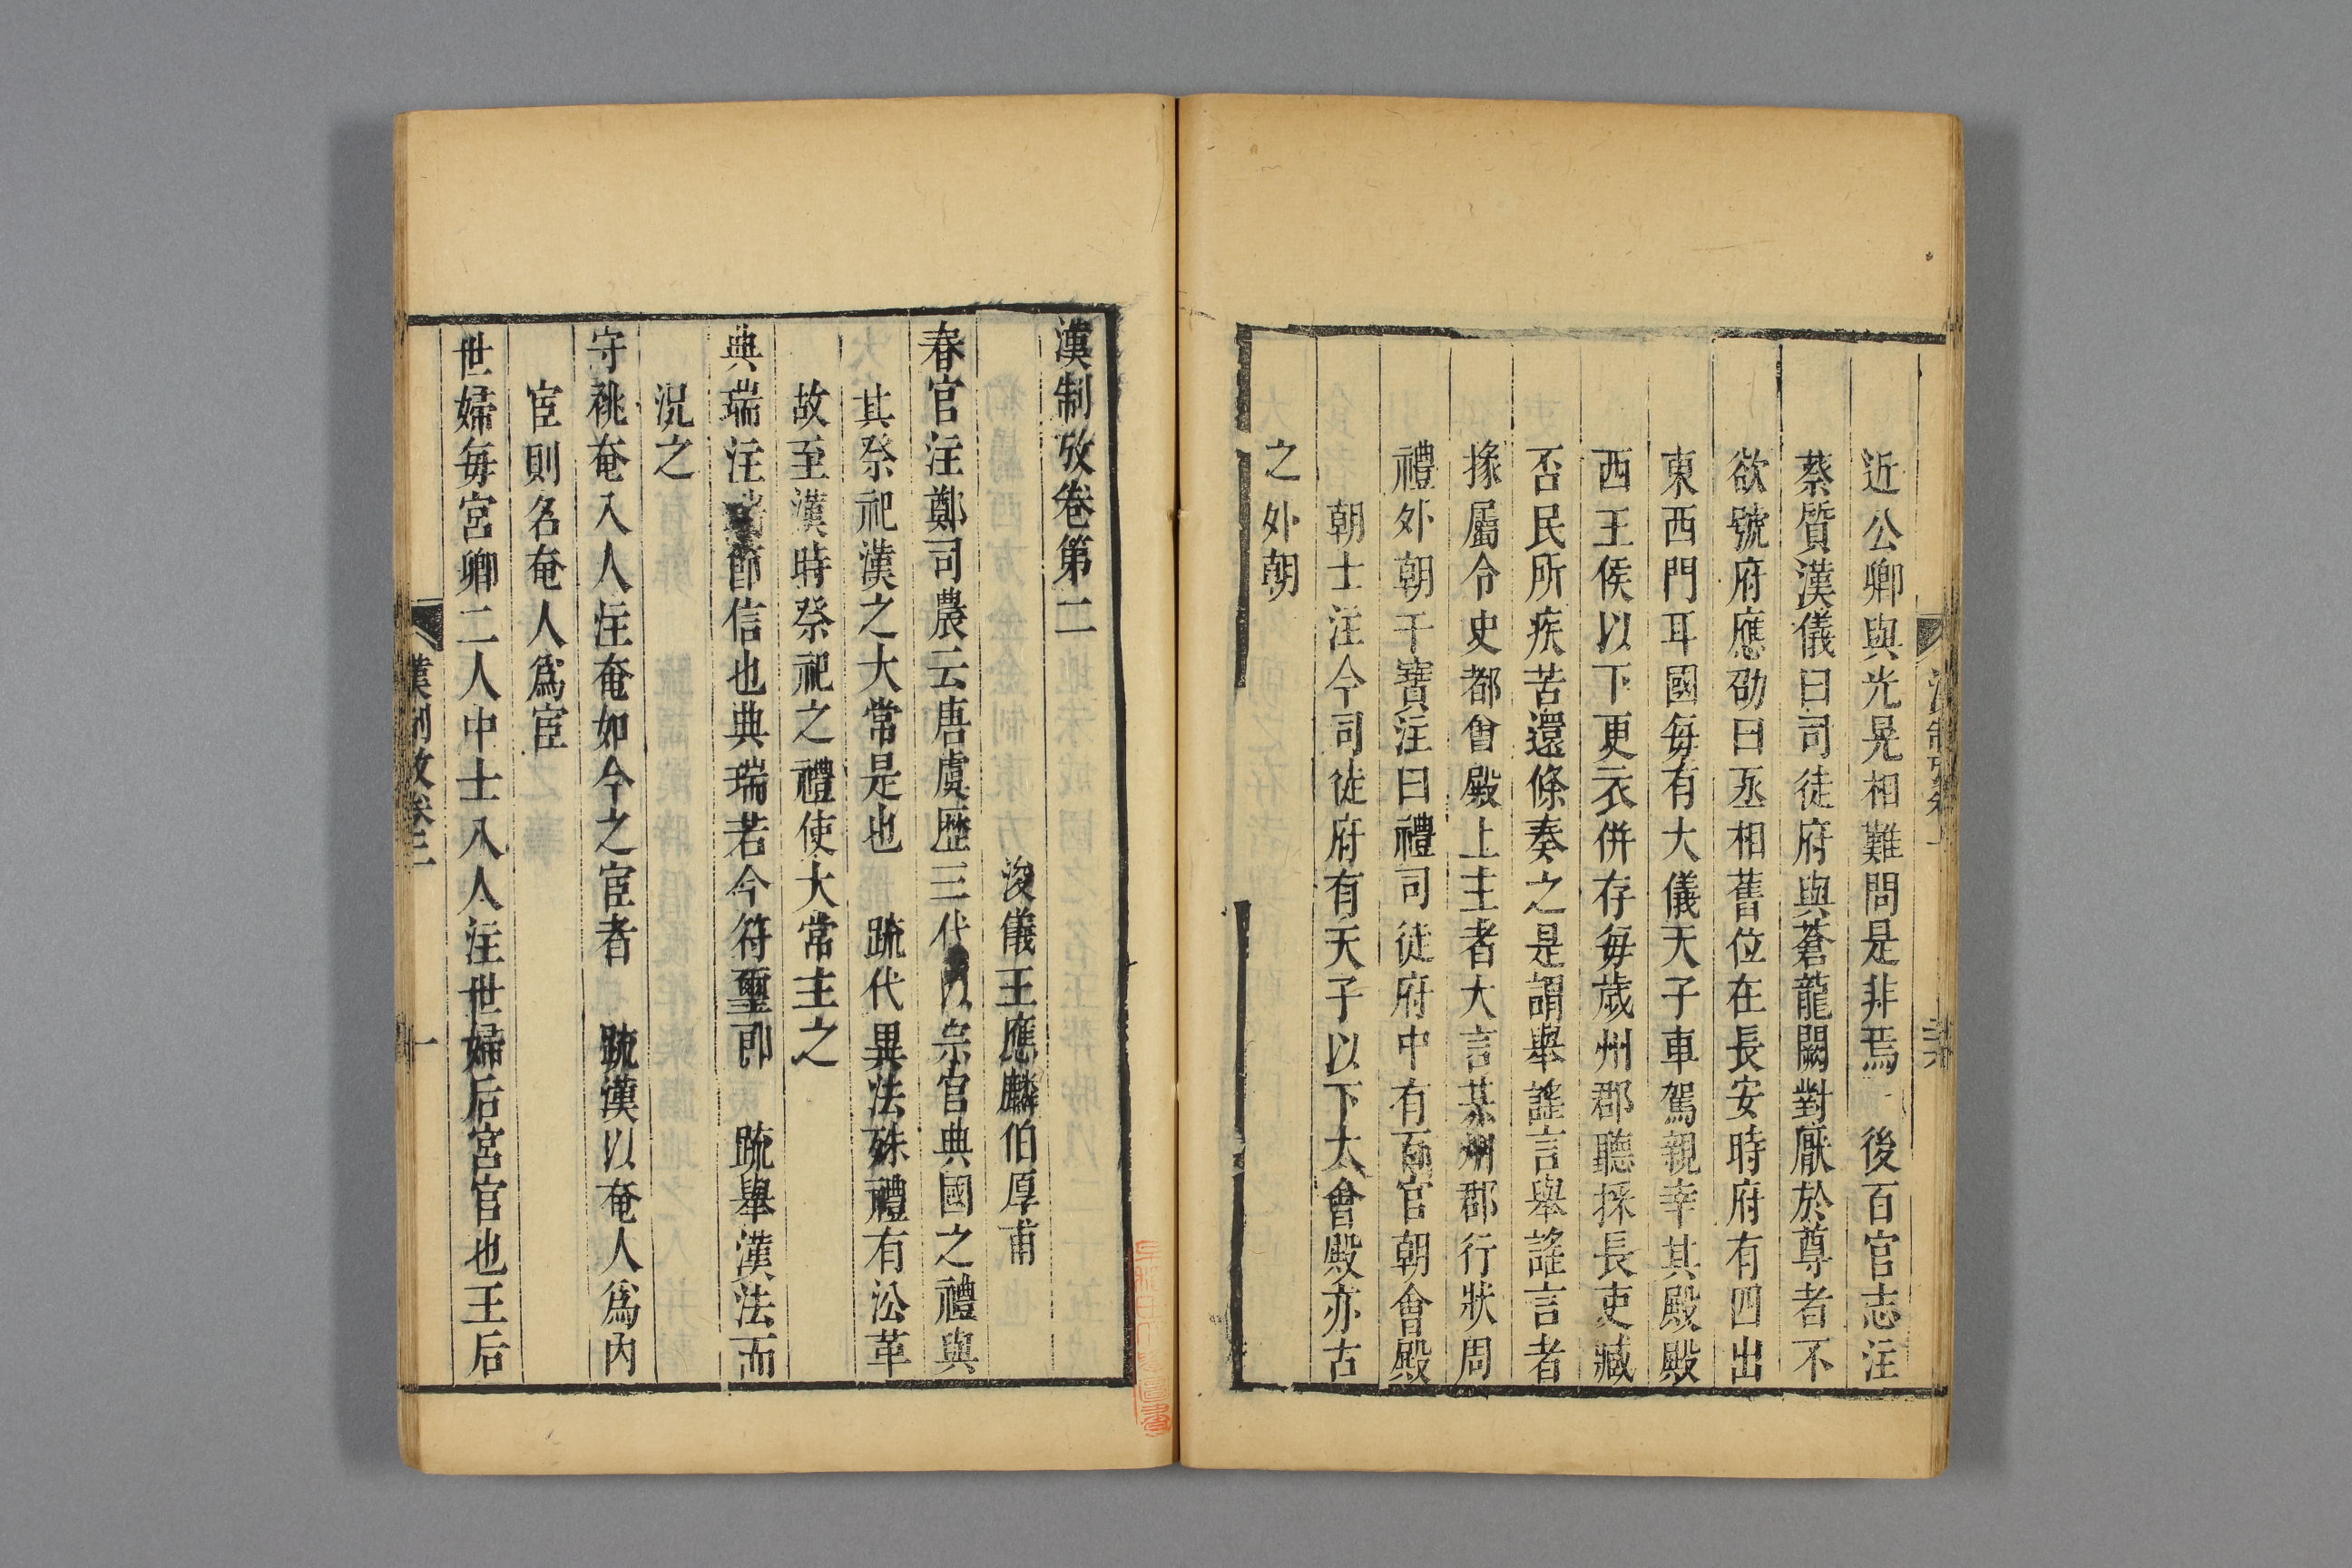 近公卿與光晃相難問是非焉 後百官志注
蔡質漢儀曰司徒府與蒼龍闕對厭於尊者不
欲號府應劭曰丞相舊位在長安時府有四出
東西門耳國每有大儀天子車駕親幸其殿殿
西王侯以下更衣併存每歲州郡聽採長吏臧
否民所疾苦還條奏之是謂舉謠言舉謠言者
掾屬令史都會殿上主者大言某州郡行狀周
禮外朝干寶注曰禮司徒府中有百官朝會殿
朝士注今司徒府有天子以下大會殿亦古
之外朝
漢制攷卷第二
浚儀王應麟伯厚甫
春官注鄭司農云唐虞歷三代以宗官典國之禮與
其祭祀漢之大常是也 疏代異法殊禮有沿革
故至漢時祭祀之禮使大常主之
典瑞注瑞節信也典瑞若今符璽郎 疏舉漢法而
況之
守祧奄八人注奄如今之宦者 疏漢以奄人爲内
宦則名奄人爲宦
世婦每宮卿二人中士八人注世婦后宮官也王后
漢制攷卷二
一